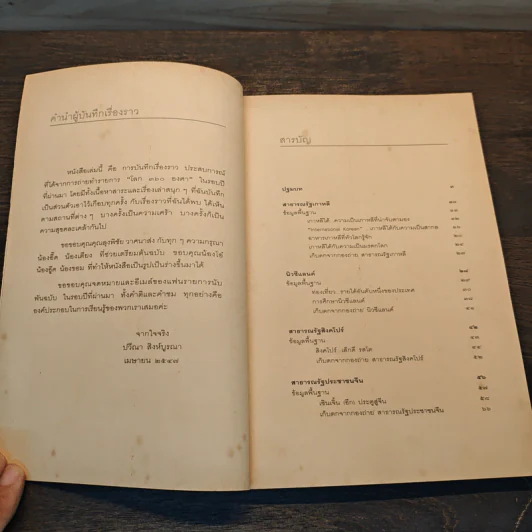 คำนำผู้บันทึกเรื่องราว
หนังสือเล่มนี้ คือ การบันทึกเรื่องราว ประสบการณ์
ที่ได้จากการถ่ายทำรายการ "โลก ๓๖๐ องศา" ในรอบปี
ที่ผ่านมา โดยมีทั้งเนื้อหาสาระและเรื่องเล่าสนุก ๆ ที่ฉันบันทึก
เป็นส่วนตัวเอาไว้เกือบทุกครั้ง กับเรื่องราวที่ฉันได้พบ ได้เห็น
ตามสถานที่ต่าง ๆ บางครั้งเป็นความเศร้า บางครั้งก็เป็น
ความสุขคละเคล้ากันไป
ขอขอบคุณคุณอุงพิชัย วาศนาส่ง กับทุก ๆ ความกรุณา
น้องอี๊ด น้องเตี่ยง ที่ช่วยเตรียมต้นฉบับ ขอบคุณน้องโอ๋
น้องอู๊ด น้องขอม ที่ทำให้หนังสือเป็นรูปเป็นร่างขึ้นมาได้
ขอขอบคุณจดหมายและอีเมล์ของแฟนรายการนับ
พันฉบับ ในรอบปีที่ผ่านมา ทั้งคำติและคำชม ทุกอย่างคือ
องค์ประกอบในการเรียนรู้ของพวกเราเสมอค่ะ
จากใจจริง
ปวีณา สิงห์บูรณา
เมษายน ๒๕๔๗
สารบัญ
ปฐมบท
สาธารณรัฐเกาหลี
ข้อมูลพื้นฐาน
เกาหลีใต้...ความเป็นเกาหลีที่น่าจับตามอง
"International Korean" ...เกาหลีใต้กับความเป็นสากล
อาหารเกาหลีที่ทั่วโลกรู้จัก
เกาหลีใต้กับความเป็นมรดกโลก
เก็บตกจากกองถ่าย สาธารณรัฐเกาหลี
นิวซีแลนด์
ข้อมูลพื้นฐาน
ท่องเที่ยว...รายได้อันดับหนึ่งของประเทศ
การศึกษานิวซีแลนด์
เก็บตกจากกองถ่าย นิวซีแลนด์
สาธารณรัฐสิงคโปร์ ๔๒
ข้อมูลพื้นฐาน
สิงคโปร์ เล็กดี รสโต
เก็บตกจากกองถ่าย สาธารณรัฐสิงคโปร์
สาธารณรัฐประชาชนจีน
ข้อมูลพื้นฐาน
เซินเจิ้น (อีก) ประตูสู่จีน
เก็บตกจากกองถ่าย สาธารณรัฐประชาชนจีน ๖๖